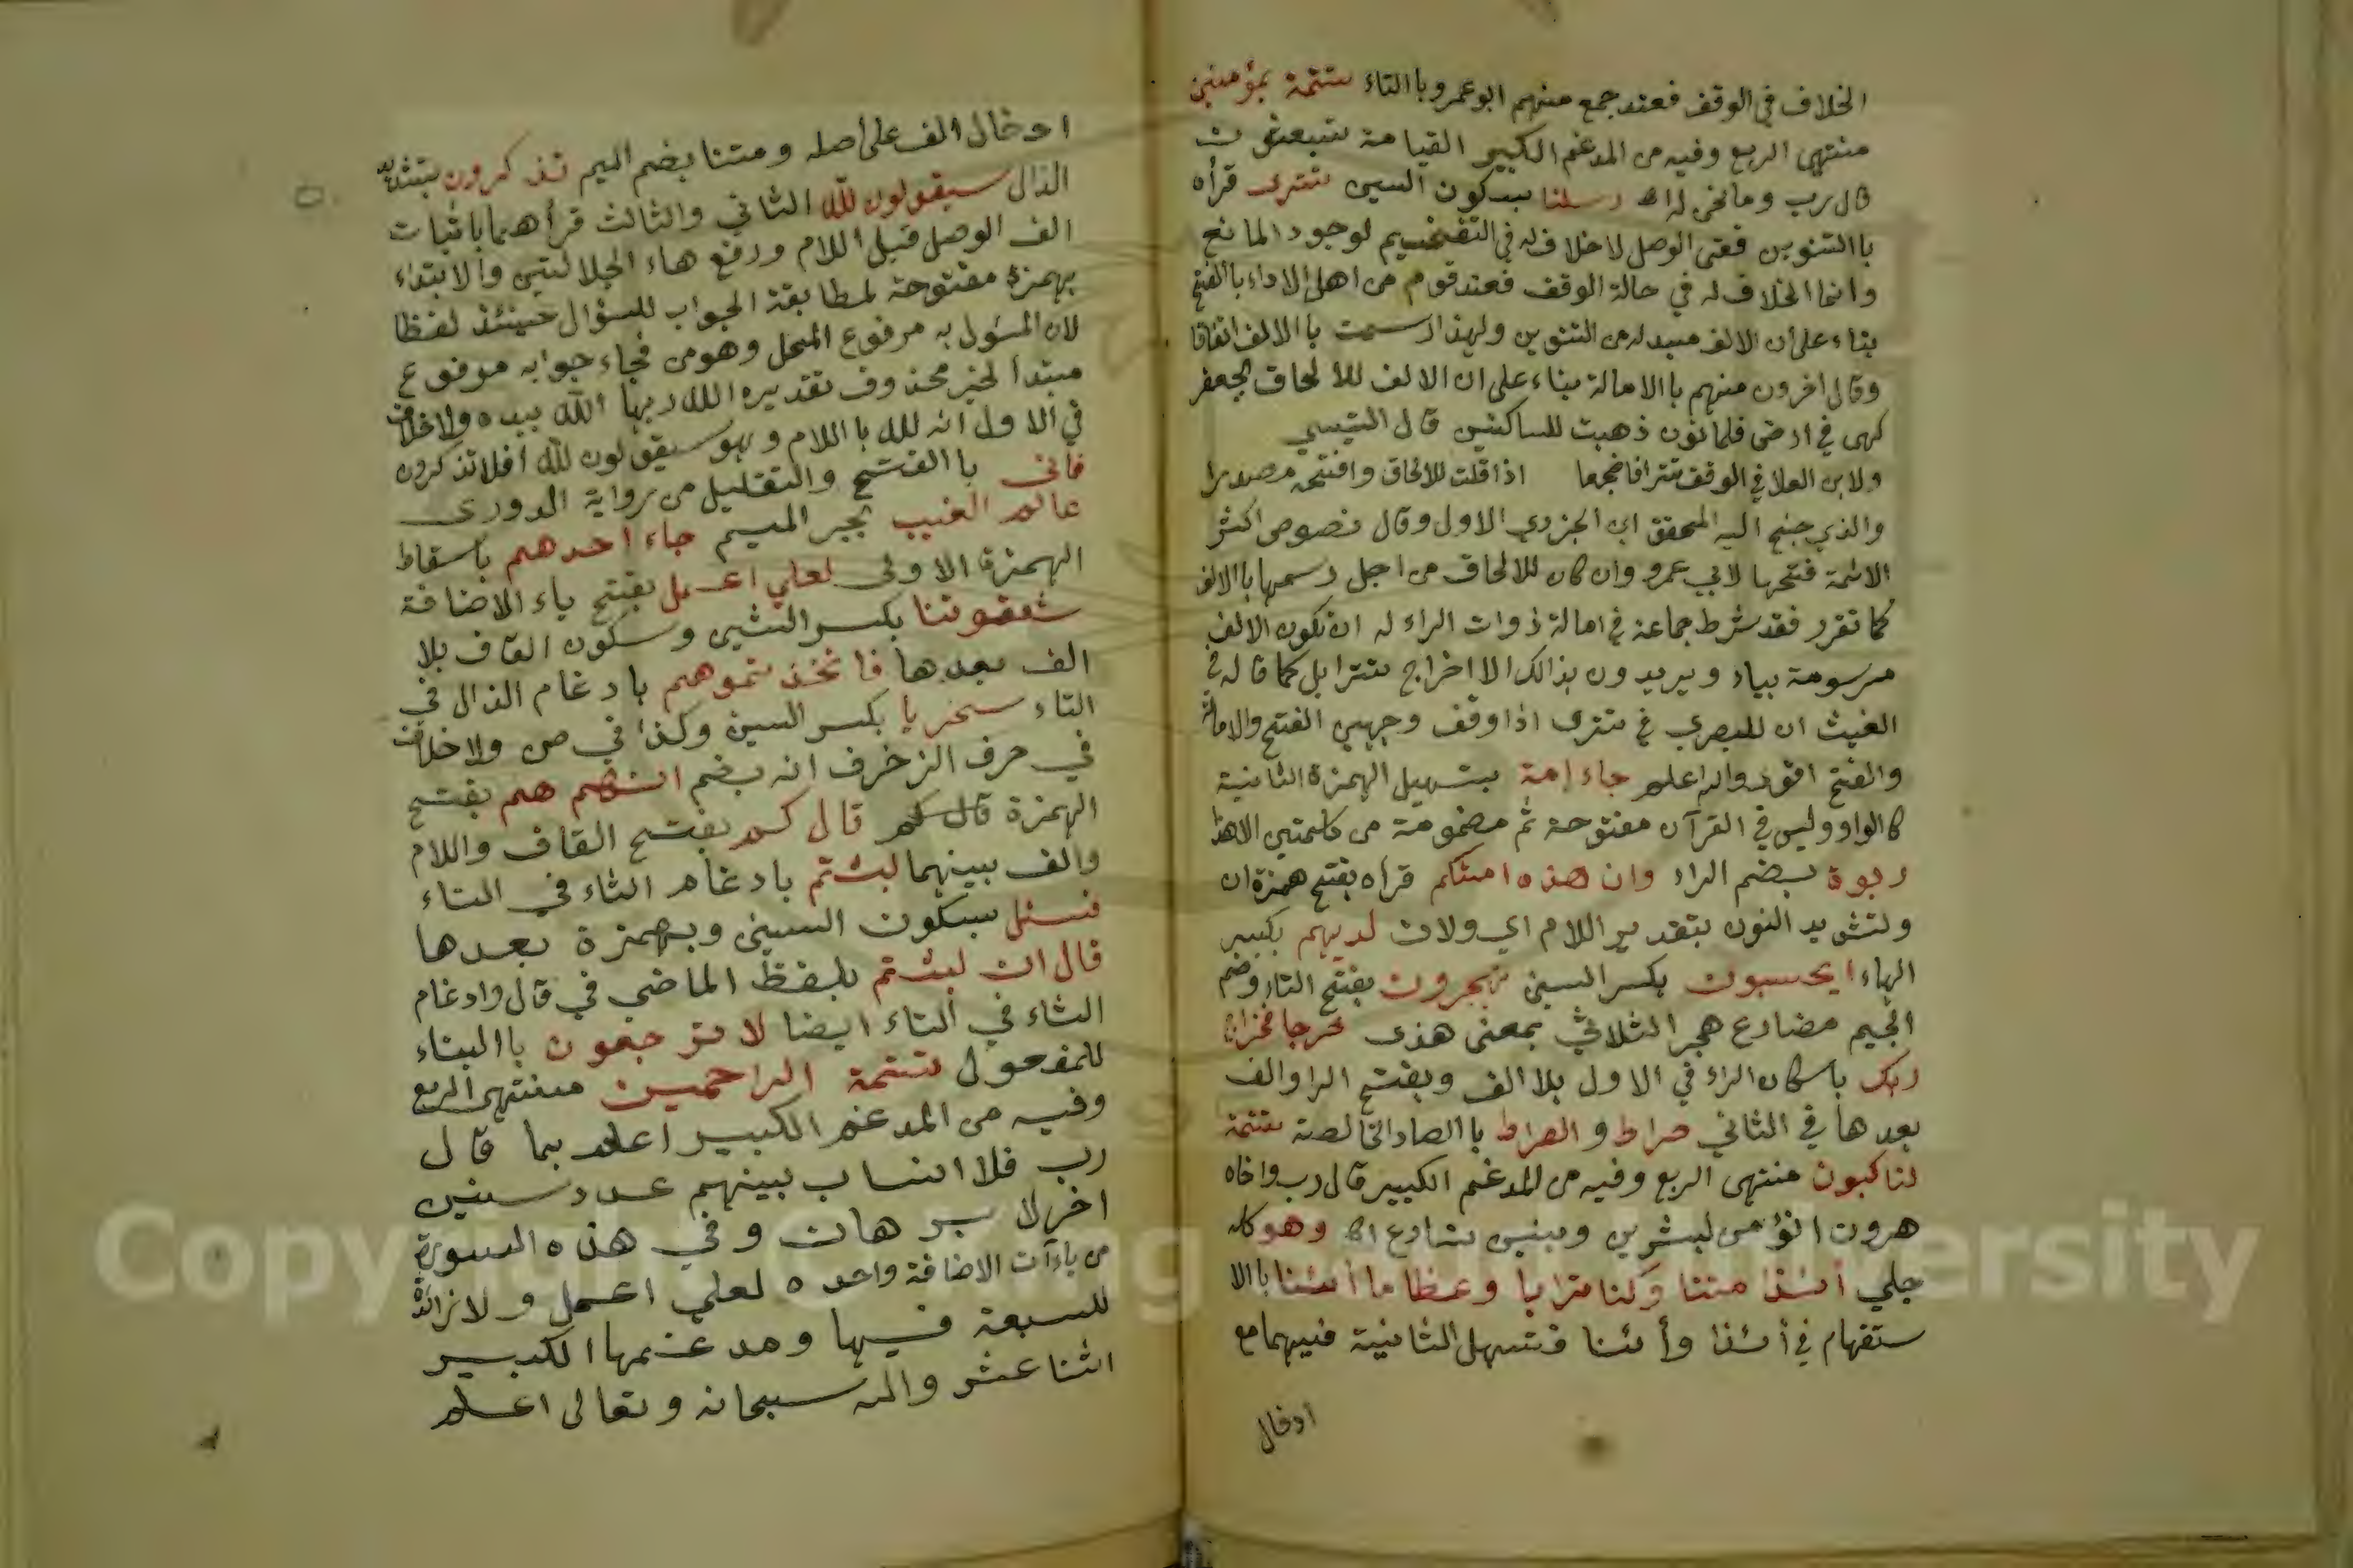 الخلاف في الوقف فعند جمع منهم ابو عمرو باالتاء تتمة بمؤمنين
منتهى الربع وفيه من المدغم الكبير القيامة تبعثون
قال رب وما نحن له اه رسلنا بسكون السين تترى قرأه
باالتنوين ففى الوصل لاخلاف له في التفخيم لوجود المانع
وانما الخلاف له في حالة الوقف فعند قوم من اهل الاداء باالفتح
بناء على ان الالف مبدله من التنوين ولهذا رسمت باالالف اتفاقا
وقال اخرون منهم باالامالة بناء على ان الالف للالحاق بجعفر
كهى في ارضى فلما نون ذهبت للساكنين قال
ولابن العلا في الوقف تترا فاضجعا اذا قلت للالحاق وافتحه مصدرا
والذي جنح اليه المحقق ابن الجزري الاول وقال نصوص اكثر
الائمة فتحها لابي عمرو وان كان للالحاق من اجل رسمها باالالف
كما تقرر فقد شرط جماعة في امالة ذوات الراء له ان تكون الالف
مرسومة بياء ويريدون بذالك الا اخراج تترا بل كما قاله في
الغيث ان للبصري في تترى اذا وقف وجهين الفتح والامالة
والفتح اقوى والله اعلم جاء امة بتسهيل الهمزة الثانية
كالواو وليس في القرآن مفتوحة ثم مضمومة من كلمتين الا هذا
ربوة بضم الراء وان هذه امتكم قراه بفتح همزة ان
وتشديد النون بتقدير اللام اي ولان لديهم بكسر
الهاء ايحسبون بكسر السين تهجرون بفتح التاء وضم
الجيم مضارع هجر الثلاثي بمعنى هذى خرجا فخراج
ربك باسكان الراء في الاول بلا الف وبفتح الرا والف
بعدها في الثاني صراط و الصراط باالصاد الخالصة تتمة
لناكبون منتهى الربع وفيه من المدغم الكبير قال رب واخاه
هرون انؤمن لبشرين وبنين نسارع اه وهو كله
جلي أئذا متنا وكنا ترابا وعظاما أئنا باالا
ستفهام في أئذا وأئنا وتسهل الثانية فيهما مع
ادخال
ادخال الف على أصله ومتنا بضم الميم تذكرون بتشديد
الذال سيقولون لله الثاني والثالث قرأهما باثبات
الف الوصل قبل اللام ورفع هاء الجلالتين والابتداء
بهمزة مفتوحة لمطابقة الجواب للسؤال حينئذ لفظا
لان المسئول به مرفوع المحل وهو من فجاء جوابه مرفوع
مبتدأ لخبر محذوف تقديره الله ربها الله بيده ولاخلاف
في الاول انه لله باللام وهو سيقولون لله أفلا تذكرون
فانى باالفتح والتقليل من رواية الدوري
عالم الغيب بجر الميم جاء احدهم باسقاط
الهمزة الاولى لعلي اعمل بفتح ياء الاضافة
شقوتنا بكسر الشين وسكون القاف بلا
الف بعدها فاتخذتموهم بادغام الذال في
التاء سخريا بكسر السين وكذا في ص ولاخلاف
في حرف الزخرف انه بضم انهم هم بفتح
الهمزة قال كم قال كم بفتح القاف واللام
والف بينهما لبثتم بادغام الثاء في التاء
فسئل بسكون السين وبهمزة بعدها
قال ان لبثتم بلفظ الماضي في قال وادغام
الثاء في التاء ايضا لا ترجعون باالبناء
للمفعول تتمة الراحمين منتهى الربع
وفيه من المدغم الكبير اعلم بما قال
رب فلا انساب بينهم عدد سنين
اخر لا برهان وفي هذه السورة
من ياءآت الاضافة واحده لعلي اعمل ولا زائدة
للسبعة فيها ومدغمها الكبير
اثنا عشر والله سبحانه وتعالى اعلم